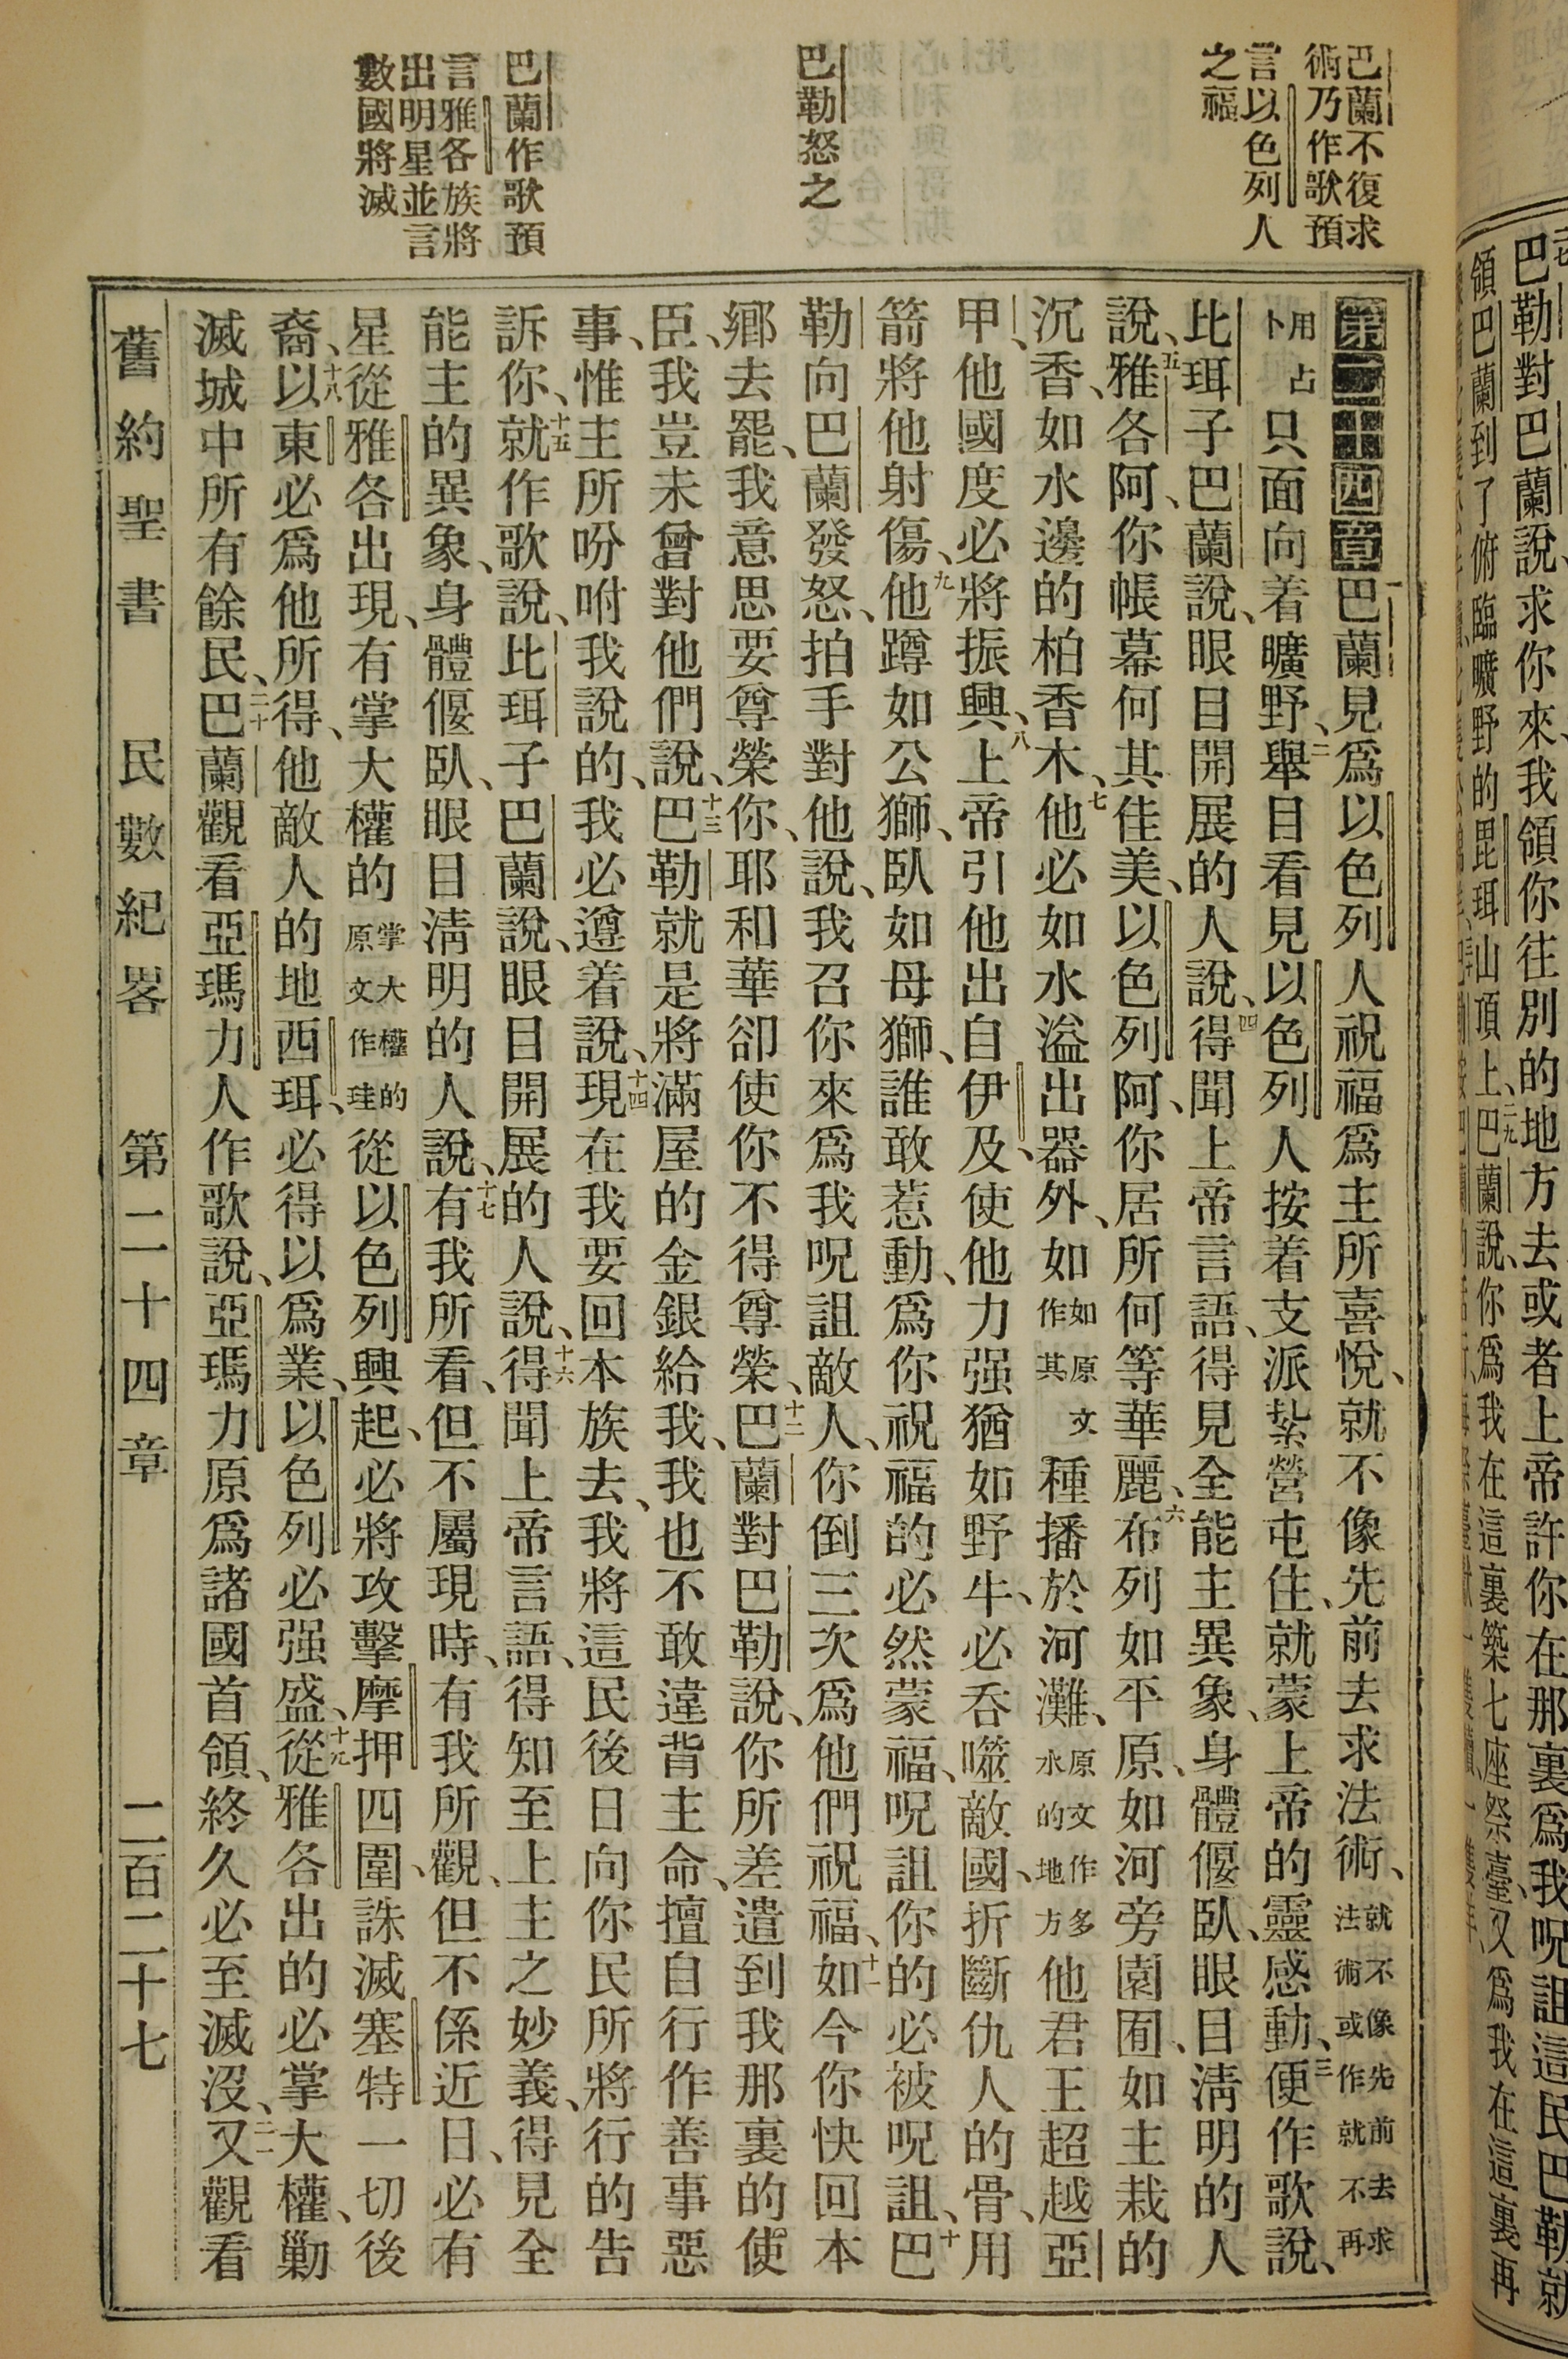 巴勒對巴蘭說、求你來、我領你往別的地方去或者上帝許你在那裏爲我呪詛這民巴勒就
領巴蘭到了俯臨曠野的毘珥山頂上、二九巴蘭說、你爲我在這裏築七座祭臺、又爲我在這裏再
巴蘭不復求
術乃作歌預
言以色列人
之福
巴勒怒之
巴蘭作歌預
言雅各族將
出明星並言
數國將滅
第二十四章一巴蘭見爲以色列人祝福爲主所喜悅、就不像先前去求法術、就不像先前去求法術或作就不再
用占卜只面向着曠野、二舉目看見以色列人按着支派紮營屯住、就蒙上帝的靈感動、三便作歌說、
比珥子巴蘭說、眼目開展的人說、四得聞上帝言語、得見全能主異象、身體偃臥、眼目淸明的人
說、五雅各阿、你帳幕何其佳美、以色列阿、你居所何等華麗、六布列如平原、如河旁園囿、如主栽的
沉香、如水邊的柏香木、七他必如水溢出器外、如如原文作其種播於河灘、原文作多水的地方他君王超越亞
甲、他國度必將振興、八上帝引他出自伊及、使他力强猶如野牛、必呑噬敵國、折斷仇人的骨、用
箭將他射傷、九他蹲如公獅、臥如母獅、誰敢惹動、爲你祝福的必然蒙福、呪詛你的必被呪詛、十巴
勒向巴蘭發怒、拍手對他說、我召你來爲我呪詛敵人、你倒三次爲他們祝福、十一如今你快回本
鄉去罷、我意思要尊榮你、耶和華卻使你不得尊榮、十二巴蘭對巴勒說、你所差遣到我那裏的使
臣、我豈未曾對他們說、十三巴勒就是將滿屋的金銀給我、我也不敢違背主命、擅自行作善事惡
事、惟主所吩咐我說的、我必遵着說、十四現在我要回本族去、我將這民後日向你民所將行的告
訴你、十五就作歌說、比珥子巴蘭說、眼目開展的人說、十六得聞上帝言語、得知至上主之妙義、得見全
能主的異象、身體偃臥、眼目淸明的人說、十七有我所看、但不屬現時、有我所觀、但不係近日、必有
星從雅各出現、有掌大權的掌大權的原文作珪從以色列興起、必將攻擊摩押四圍、誅滅塞特一切後
裔、十八以東必爲他所得、他敵人的地西珥、必得以爲業、以色列必强盛、十九從雅各出的必掌大權、勦
滅城中所有餘民、二十巴蘭觀看亞瑪力人作歌說、亞瑪力原爲諸國首領、終久必至滅沒、二一又觀看
舊約聖書　民數紀畧　第二十四章　二百二十七